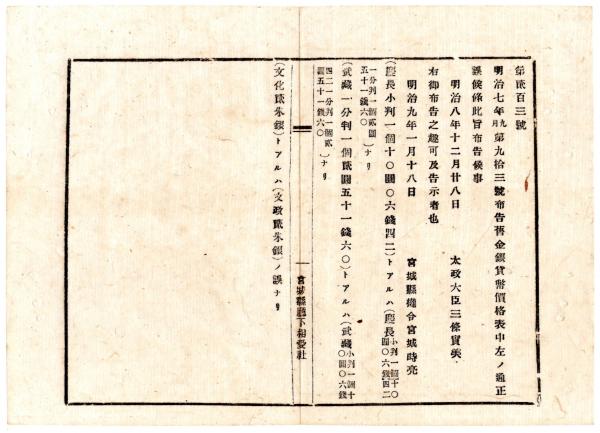 第貳百三號
明治七年九月第九拾三號布告舊金銀貨幣價格表中左ノ通正
誤候條此旨布告候事
明治八年十二月廿八日
太政大臣三條實美
右御布告之趣可及告示者也
明治九年一月十八日
宮城縣權令宮城時亮
(慶長小判一個十〇圓〇六錢四二)トアルハ(慶長小判一個十〇圓〇六錢四二
一分判一個貳圓五十一錢六〇)ナリ
(武藏一分判一個貳圓五十一錢六〇)トアルハ(武藏小判一個十〇圓〇六錢
四二一分判一個貳圓五十一錢六〇)ナリ
宮城縣廳下相愛社
(文化貳朱銀)トアルハ(文政貳朱銀)ノ誤ナリ